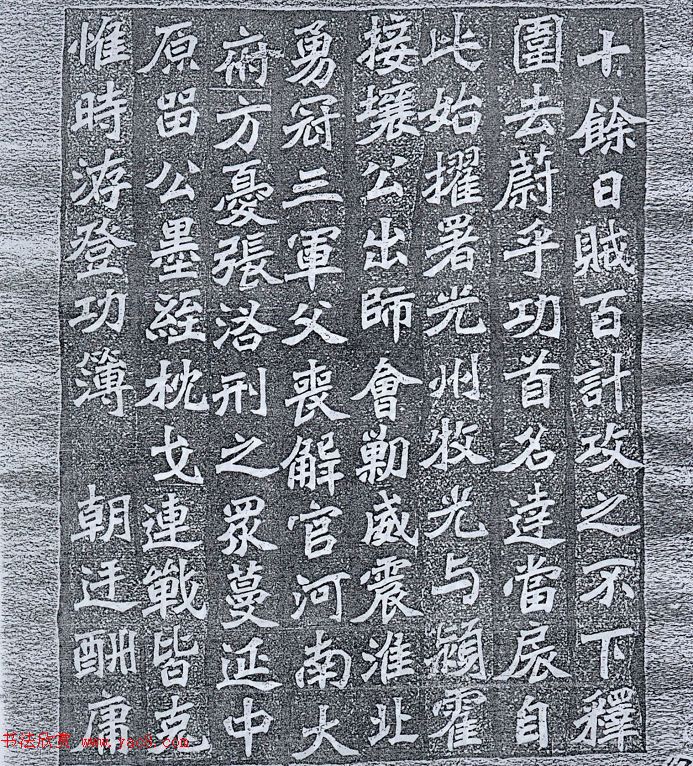 十餘日賊百計攻之不下釋
圍去蔚乎功首名達當扆自
此始擢署光州牧光与潁霍
接壤公出師會勦威震淮北
勇冠三軍父喪解官河南大
府方憂張洛刑之眾蔓延中
原留公墨絰枕戈連戰皆克
惟時游登功簿　朝廷酬庸
书法欣赏 www.yac8.com